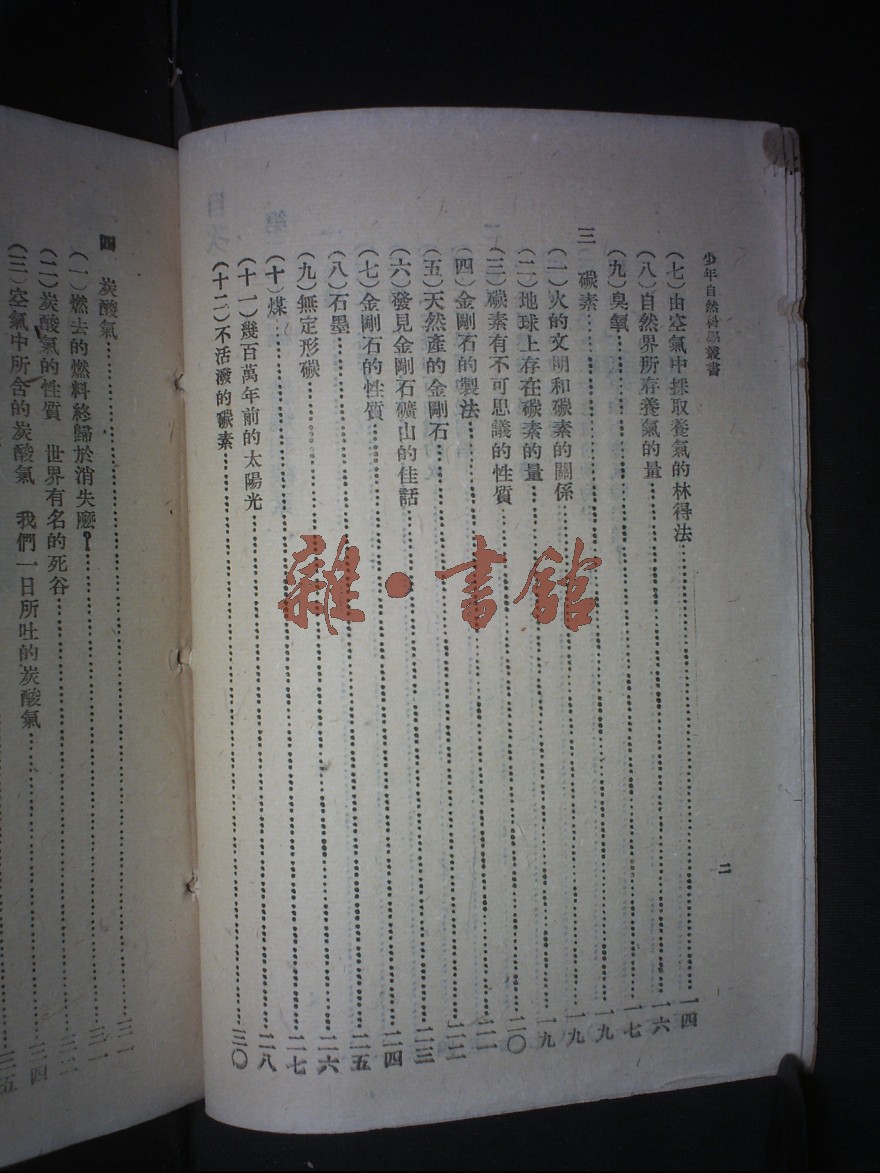 少年自然科學叢書
二
(七)由空氣中採取養氣的林得法……一四
(八)自然界所存養氣的量……一六
(九)臭氧……一七
三 碳素……一九
(一)火的文明和碳素的關係……一九
(二)地球上存在碳素的量……一九
(三)碳素有不可思議的性質……二〇
(四)金剛石的製法……二一
(五)天然產的金剛石……二二
(六)發見金剛石礦山的佳話……二三
(七)金剛石的性質……二四
(八)石墨……二五
(九)無定形碳……二六
(十)煤……二七
(十一)幾百萬年前的太陽光……二八
(十二)不活潑的碳素……三〇
四 炭酸氣……三一
(一)燃去的燃料終歸於消失麼?……三一
(二)炭酸氣的性質 世界有名的死谷……三二
(三)空氣中所含的炭酸氣 我們一日所吐的炭酸氣……三四
三五
雜·書館